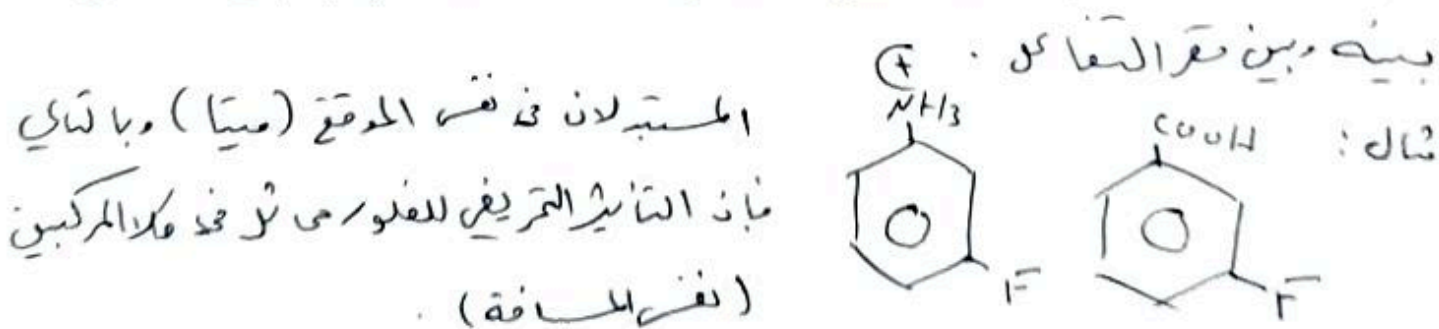 بينه وبين مقر التفاعل .
مثال :
COOH
F
⊕
NH3
F
المستبدلان في نفس الموقع (ميتا) وبالتالي
فإن التأثير التحريضي للفلور مماثل في كلا المركبين
(نفس المسافة) .